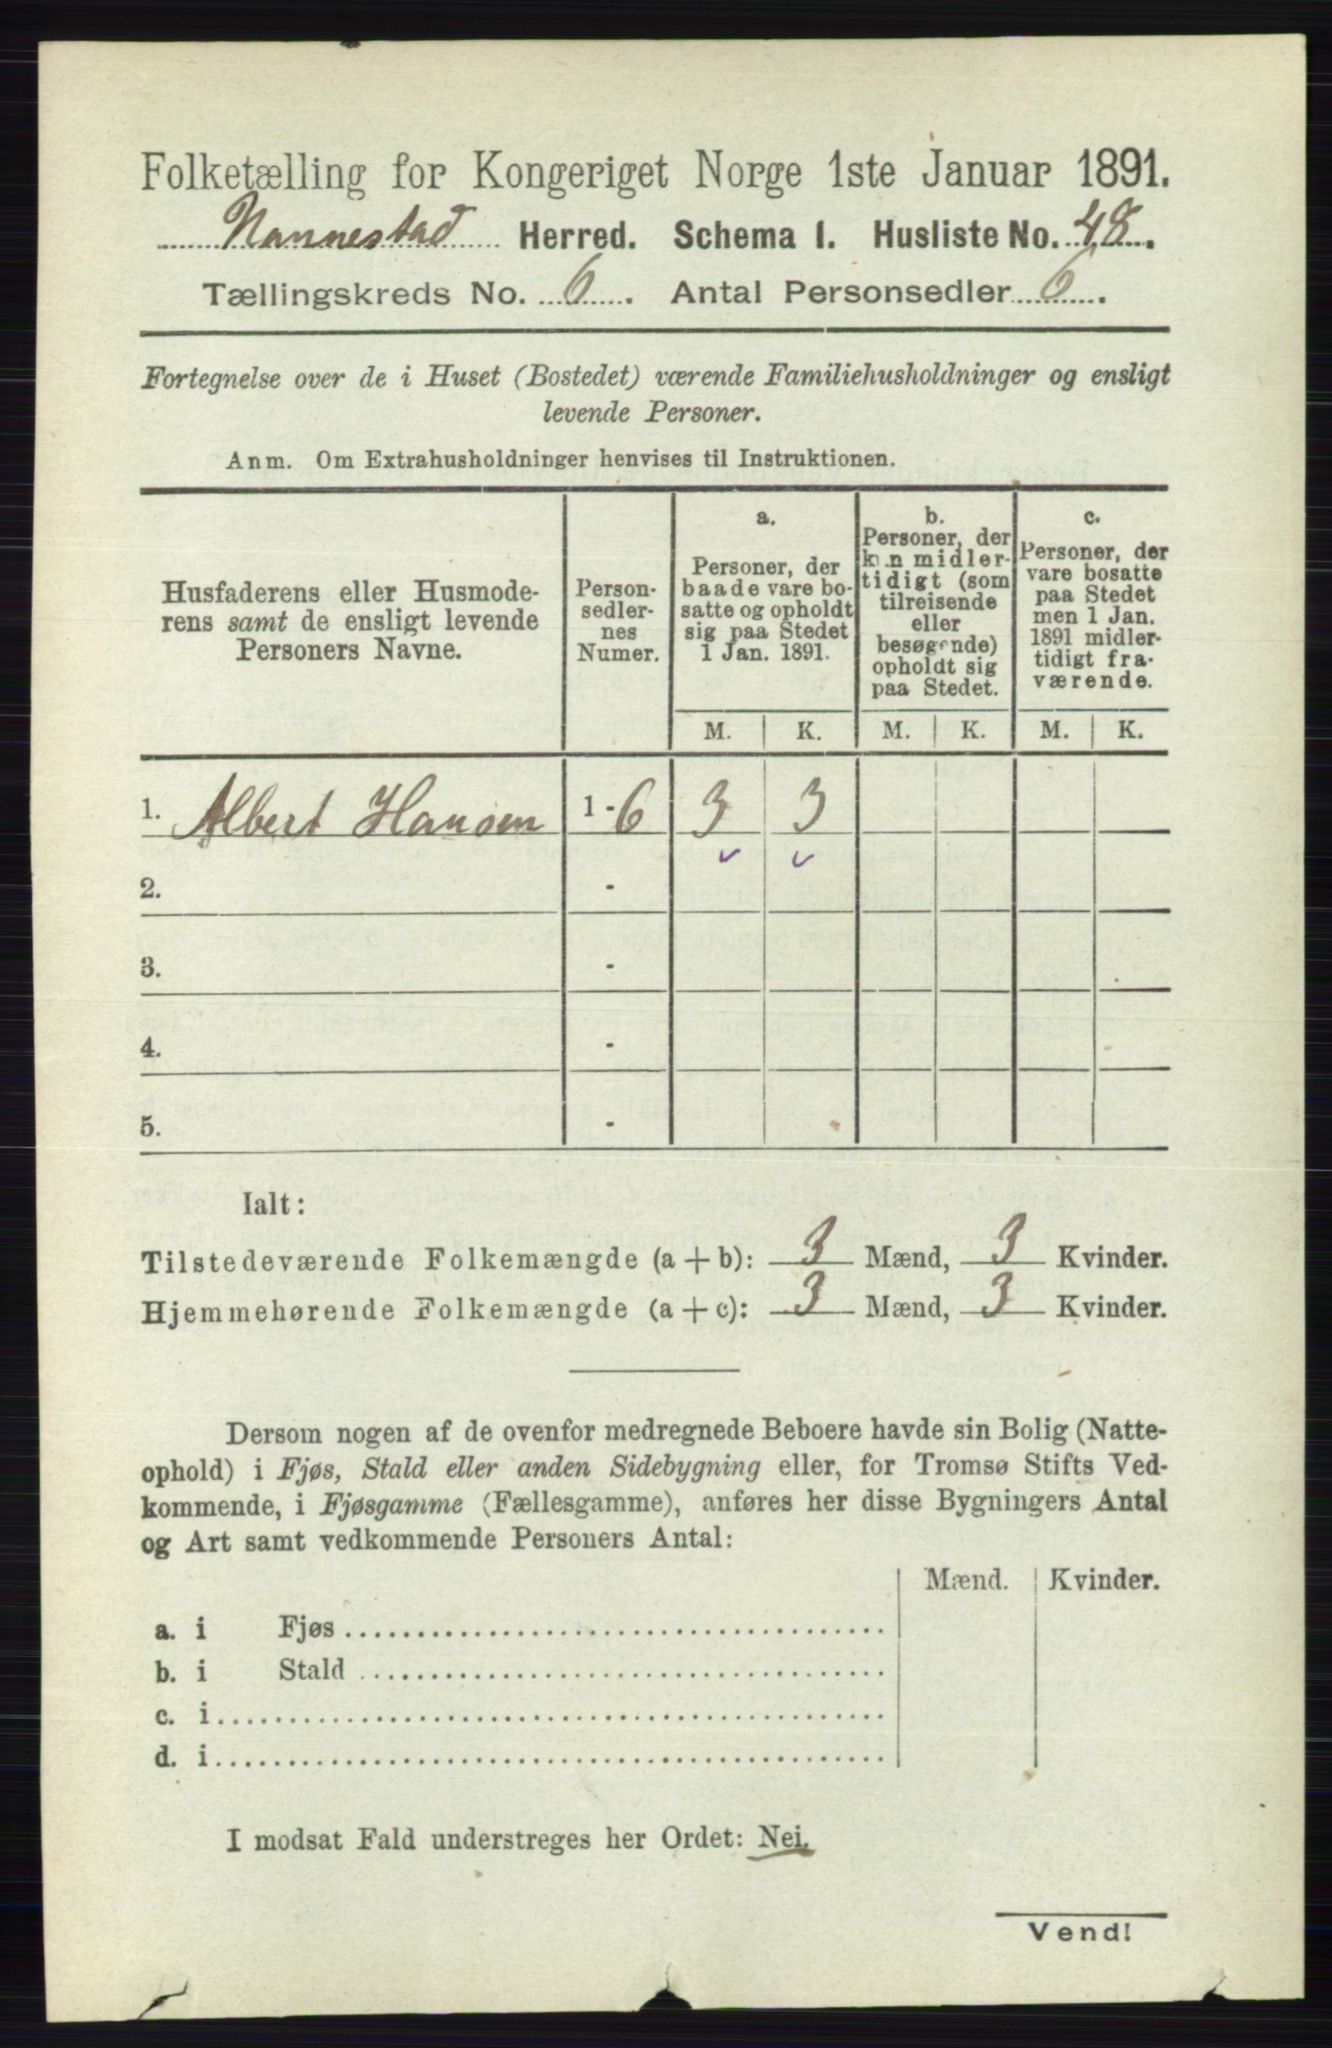 Folketælling for Kongeriget Norge 1ste Januar 1891.
Nannestad Herred. Schema I. Husliste No. 48.
Tællingskreds No. 6. Antal Personsedler 6.
Fortegnelse over de i Huset (Bostedet) værende Familiehusholdninger og ensligt
levende Personer.
Anm. Om Extrahusholdninger henvises til Instruktionen.
Husfaderens eller Husmode-
rens samt de ensligt levende
Personers Navne.
Person-
sedler-
nes
Numer.
a.
Personer, der
baade vare bo-
satte og opholdt
sig paa Stedet
1 Jan. 1891.
b.
Personer, der
kun midler-
tidigt (som
tilreisende
eller
besøgende)
opholdt sig
paa Stedet.
c.
Personer, der
vare bosatte
paa Stedet
men 1 Jan.
1891 midler-
tidigt fra-
værende.
M. K. M. K. M. K.
1. Albert Hansen 1 - 6 3 3
2. -
3. -
4. -
5. -
Ialt:
Tilstedeværende Folkemængde (a + b): 3 Mænd, 3 Kvinder.
Hjemmehørende Folkemængde (a + c): 3 Mænd, 3 Kvinder.
Dersom nogen af de ovenfor medregnede Beboere havde sin Bolig (Natte-
ophold) i Fjøs, Stald eller anden Sidebygning eller, for Tromsø Stifts Ved-
kommende, i Fjøsgamme (Fællesgamme), anføres her disse Bygningers Antal
og Art samt vedkommende Personers Antal:
Mænd. Kvinder.
a. i Fjøs
b. i Stald
c. i
d. i
I modsat Fald understreges her Ordet: Nei.
Vend!